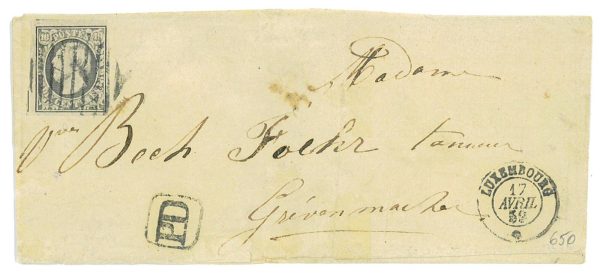 POSTES
Madame
Vve Boch Foehr tanneur
Grevenmacher
PD
LUXEMBOURG
17
AVRIL
59
650